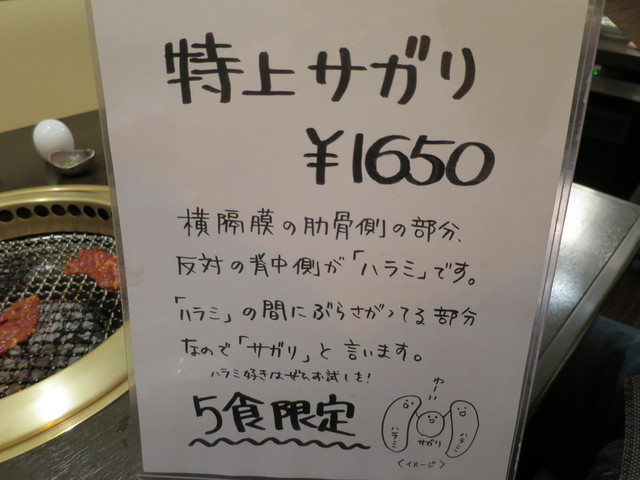 特上サガリ
¥1650
横隔膜の肋骨側の部分、
反対の背中側が「ハラミ」です。
「ハラミ」の間にぶらさがってる部分
なので「サガリ」と言います。
ハラミ好きはぜひお試しを!
5食限定
わーい
ハラミ
サガリ
ハラミ
〈イメージ〉